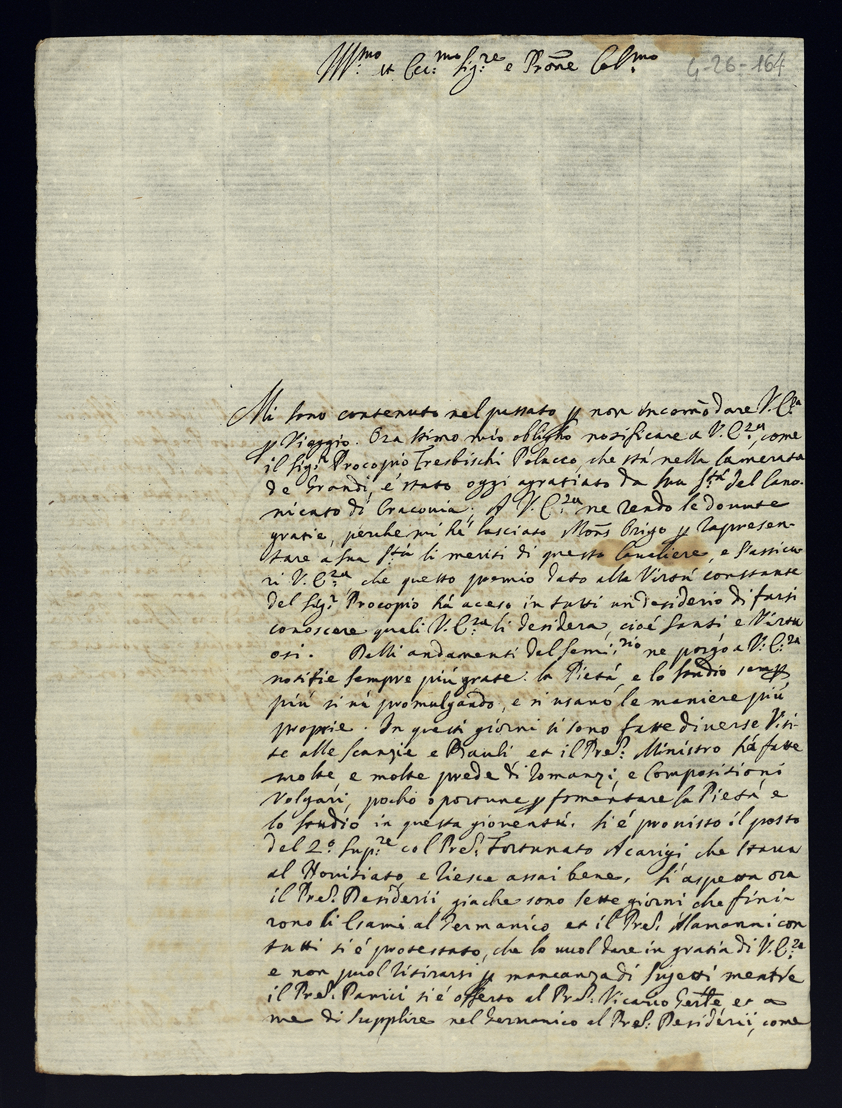 Ill.mo et Ecc.mo Sig.re e Prōne Col.mo
4-26-164
Mi sono contenuto nel passato p non incomōdare V.E.za
p Viaggio. Ora stimo mio obligho notificare a V.E.za, come
il Sig.r Procopio Tresbischi Polacco, che stà nella Camerata
de Grandi, é stato oggi agratiato da Sua S.tà del Cano-
nicato di Cracovia; A V.E.za ne rendo le dovute
gratie, perche mi hà lasciato Mons Origo p rapresen-
tare a Sua S.tà li meriti di questo Cavaliere, e l'assicu-
ri V.E.za, che questo premio dato alla Virtù constante
del Sig.r Procopio há aceso in tutti un desiderio di farsi
conoscere quali V.E.za li desidera, cioé Santi e Virtu-
osi. Delli andamenti del Semi.rio ne porgo a V.E.za
notitie sempre più grate: la Pietá, e lo studio semp
più si và promulgando, e si usano le maniere più
proprie. In questi giorni si sono fatte diverse Visi-
te alle Scanzie e Bauli et il Pre. Ministro há fatte
molte e molte prede di Romanzi, e Compositioni
Volgari, pocho oportune p fomentare la Pietá e
lo studio in questa gioventú. Si é provisto il posto
del 2.o Sup.re col Pre. Fortunato Acarigi che stava
al Novitiato e riesce assai bene. Si aspetta ora
il Pre. Desiderii giache sono sette giorni che fini-
rono li Esami al Germanico et il Pre. Alamanni con
tutti si é protestato, che lo vuol dare in gratia di V.E.za
e non puol ritirarsi p mancanza di Sugetti mentre
il Pre. Panici si é offerto al Pre. Vicario Gen̄le et a
me di supplire nel Germanico al Pre. Desiderii, come